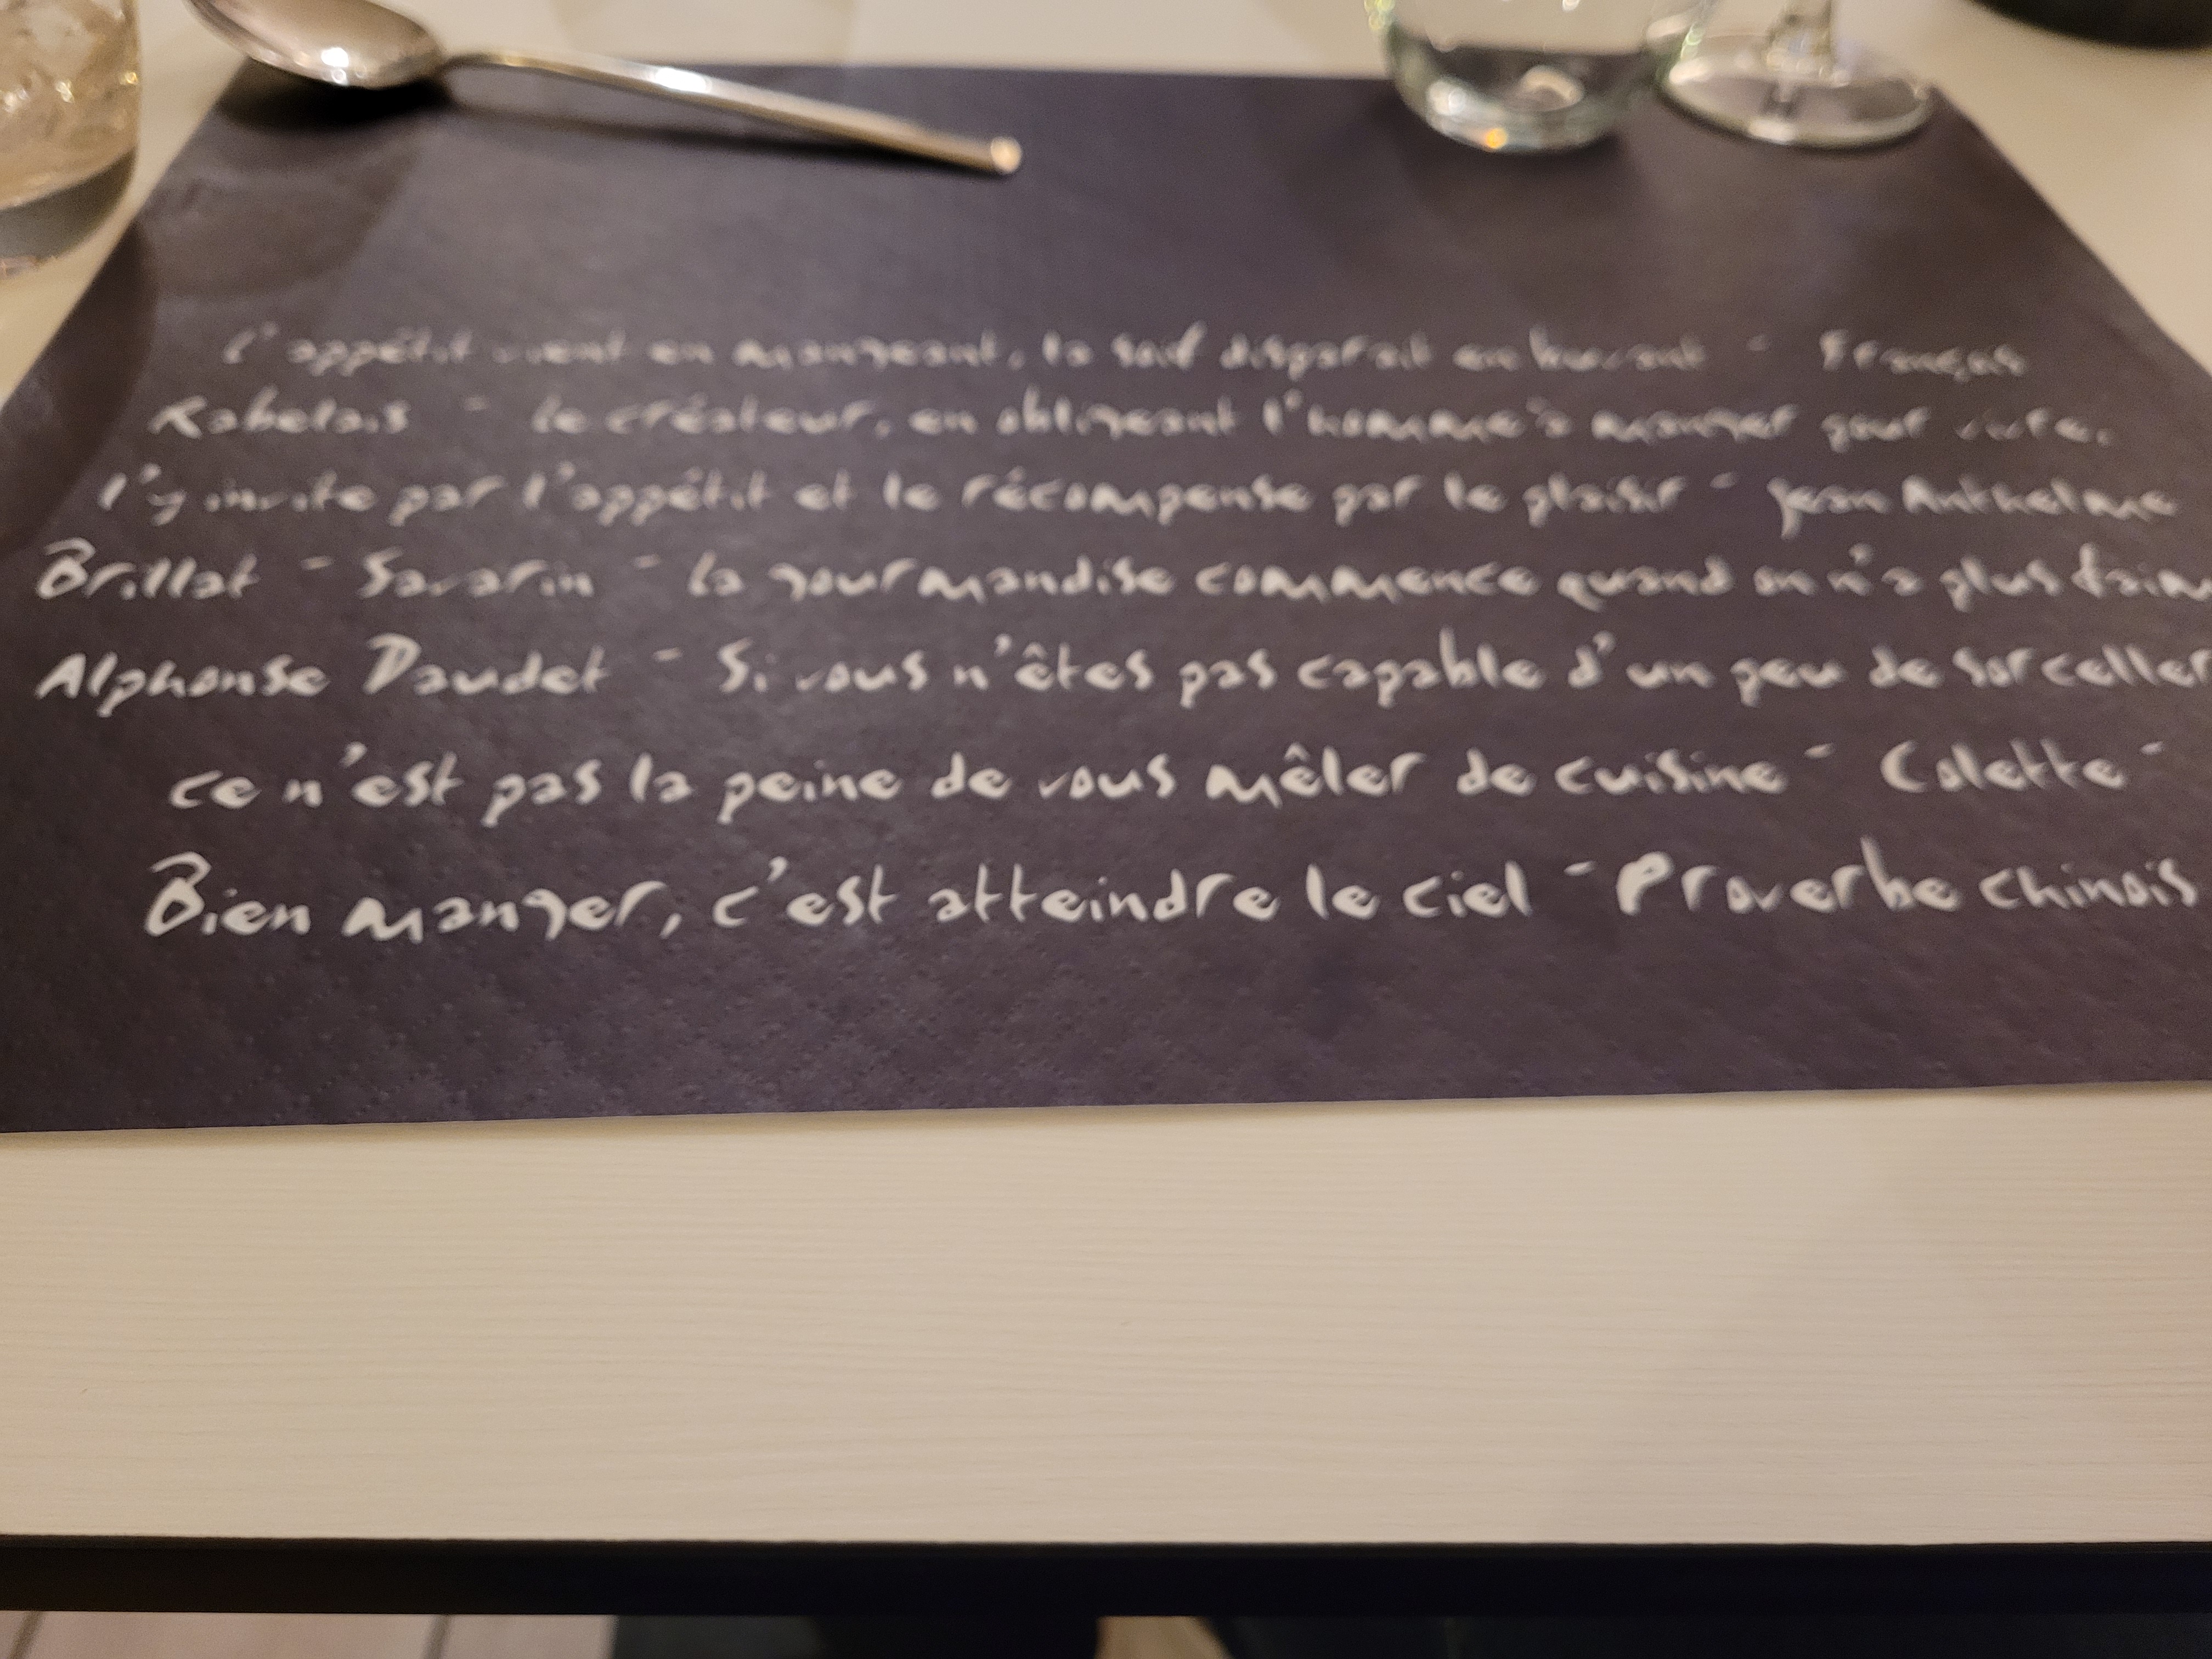 L'appétit vient en mangeant, la soif disparait en buvant - François
Rabelais - Le créateur, en obligeant l'homme à manger pour vivre,
l'y invite par l'appétit et le récompense par le plaisir - Jean Anthelme
Brillat - Savarin - La gourmandise commence quand on n'a plus faim
Alphonse Daudet - Si vous n'êtes pas capable d'un peu de sorceller
ce n'est pas la peine de vous mêler de cuisine - Colette -
Bien manger, c'est atteindre le ciel - Proverbe chinois